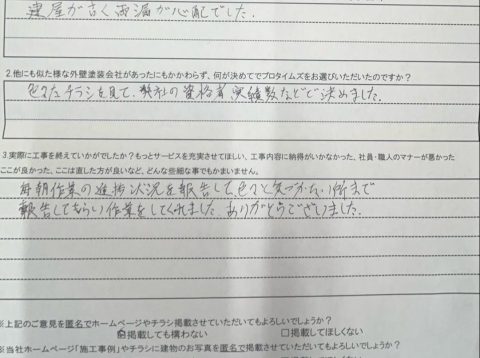 建屋が古く雨漏が心配でした.
2.他にも似た様な外壁塗装会社があったにもかかわらず、何が決めてでプロタイムズをお選びいただいたのですか？
色々なチラシを見て、弊社の資格者、実績数などで決めました.
3.実際に工事を終えていかがでしたか？もっとサービスを充実させてほしい、工事内容に納得がいかなかった、社員・職人のマナーが悪かった
ここが良かった、ここは直した方が良いなど、どんな些細な事でもかまいません。
毎朝作業の進捗状況を報告して、色々と気づかない所まで
報告してもらい作業をしてくれました. ありがとうございました.
※上記のご意見を匿名でホームページやチラシ掲載させていただいてもよろしいでしょうか？
掲載しても構わない □掲載してほしくない
※当社ホームページ「施工事例」やチラシに建物のお写真を匿名で掲載させていただいてもよろしいでしょうか？